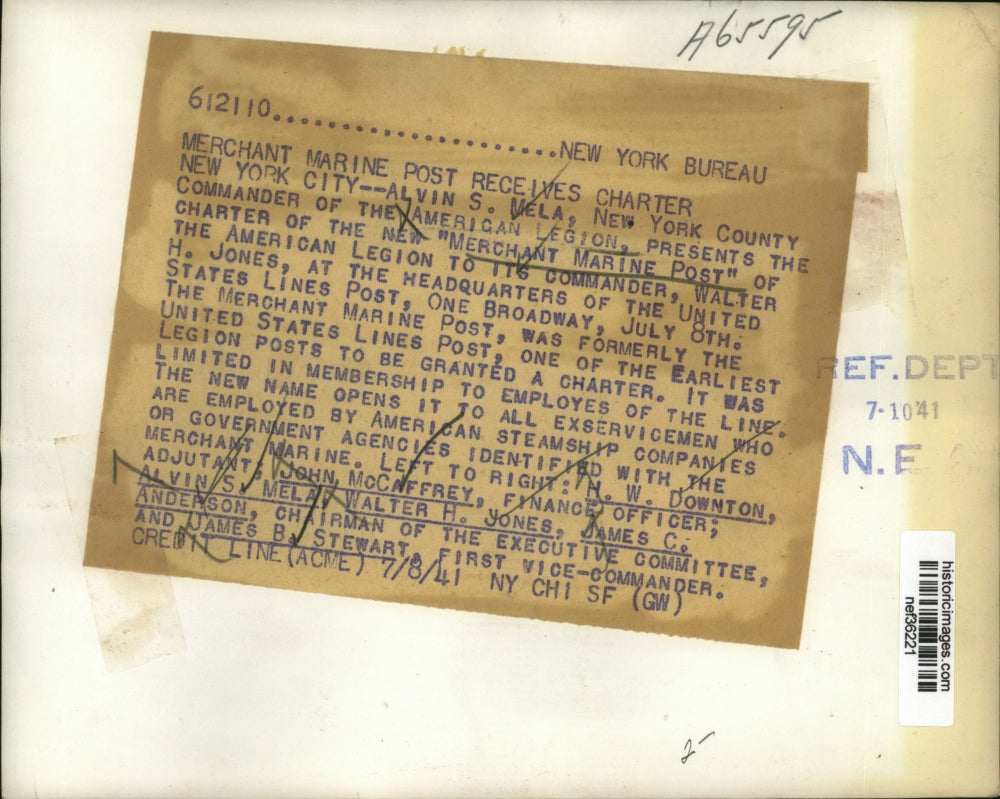 A65595
612110......................NEW YORK BUREAU
MERCHANT MARINE POST RECEIVES CHARTER
NEW YORK CITY--ALVIN S. MELA, NEW YORK COUNTY
COMMANDER OF THE AMERICAN LEGION, PRESENTS THE
CHARTER OF THE NEW "MERCHANT MARINE POST" OF
THE AMERICAN LEGION TO ITS COMMANDER, WALTER
H. JONES, AT THE HEADQUARTERS OF THE UNITED
STATES LINES POST, ONE BROADWAY, JULY 8TH.
THE MERCHANT MARINE POST, WAS FORMERLY THE
UNITED STATES LINES POST, ONE OF THE EARLIEST
LEGION POSTS TO BE GRANTED A CHARTER. IT WAS
LIMITED IN MEMBERSHIP TO EMPLOYES OF THE LINE.
THE NEW NAME OPENS IT TO ALL EXSERVICEMEN WHO
ARE EMPLOYED BY AMERICAN STEAMSHIP COMPANIES
OR GOVERNMENT AGENCIES IDENTIFIED WITH THE
MERCHANT MARINE. LEFT TO RIGHT: H. W. DOWNTON,
ADJUTANT; JOHN MCCAFFREY, FINANCE OFFICER;
ALVIN S. MELA, WALTER H. JONES, JAMES C.
ANDERSON, CHAIRMAN OF THE EXECUTIVE COMMITTEE,
AND JAMES B. STEWART, FIRST VICE-COMMANDER.
CREDIT LINE (ACME) 7/8/41 NY CHI SF (GW)
REF. DEPT
7-10'41
N.E.
historicimages.com
nef36221